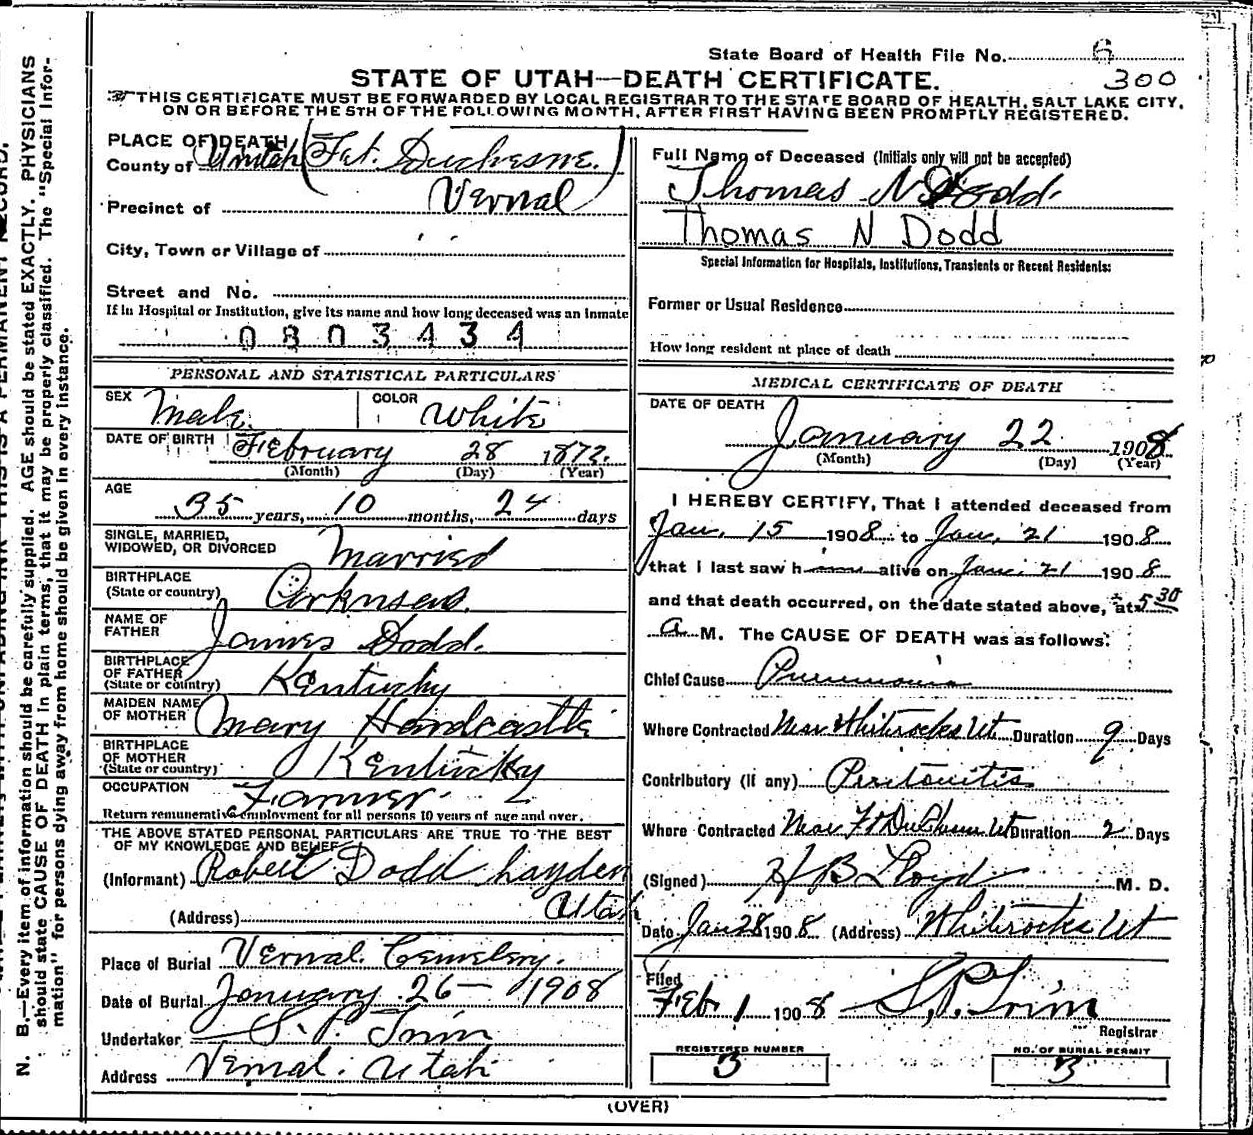 State Board of Health File No. 6
300
STATE OF UTAH—DEATH CERTIFICATE.
THIS CERTIFICATE MUST BE FORWARDED BY LOCAL REGISTRAR TO THE STATE BOARD OF HEALTH, SALT LAKE CITY,
ON OR BEFORE THE 5TH OF THE FOLLOWING MONTH, AFTER FIRST HAVING BEEN PROMPTLY REGISTERED.
PLACE OF DEATH
County of Uintah (Fort. Duchesne.)
Precinct of Vernal
City, Town or Village of " "
Street and No.
If in Hospital or Institution, give its name and how long deceased was an inmate
0803434
PERSONAL AND STATISTICAL PARTICULARS
SEX Male. COLOR White
DATE OF BIRTH February 28 1872.
(Month) (Day) (Year)
AGE
35 years, 10 months, 24 days
SINGLE, MARRIED,
WIDOWED, OR DIVORCED Married
BIRTHPLACE
(State or country) Arknsas.
NAME OF
FATHER James Dodd.
BIRTHPLACE
OF FATHER
(State or country) Kentucky
MAIDEN NAME
OF MOTHER Mary Hardcastle
BIRTHPLACE
OF MOTHER
(State or country) Kentucky
OCCUPATION Farmer.
Return remunerative employment for all persons 10 years of age and over.
THE ABOVE STATED PERSONAL PARTICULARS ARE TRUE TO THE BEST
OF MY KNOWLEDGE AND BELIEF
(Informant) Robert Dodd Layden
(Address) Utah
Place of Burial Vernal. Cemetery.
Date of Burial January 26 — 1908
Undertaker S. P. Trim
Address Vernal. Utah
Full Name of Deceased (Initials only will not be accepted)
Thomas N Dodd.
Thomas N Dodd
Special Information for Hospitals, Institutions, Transients or Recent Residents:
Former or Usual Residence
How long resident at place of death
MEDICAL CERTIFICATE OF DEATH
DATE OF DEATH
January 22 1908
(Month) (Day) (Year)
I HEREBY CERTIFY, That I attended deceased from
Jan. 15 1908 to Jan. 21 1908
that I last saw h alive on Jan. 21 1908
and that death occurred, on the date stated above, at 5 30
a M. The CAUSE OF DEATH was as follows:
Chief Cause Pneumonia
Where Contracted Near Whiterocks Ut Duration 9 Days
Contributory (if any) Peritonitis
Where Contracted Near Ft Duchesne Ut Duration 2 Days
(Signed) H B Lloyd M. D.
Date Jan 28 1908 (Address) Whiterocks Ut
Filed
Febr 1 1908 S. P. Trim
Registrar
REGISTERED NUMBER
3
NO. OF BURIAL PERMIT
3
(OVER)
N. B.—Every item of information should be carefully supplied. AGE should be stated EXACTLY. PHYSICIANS
should state CAUSE OF DEATH in plain terms, that it may be properly classified. The "Special Infor-
mation" for persons dying away from home should be given in every instance.